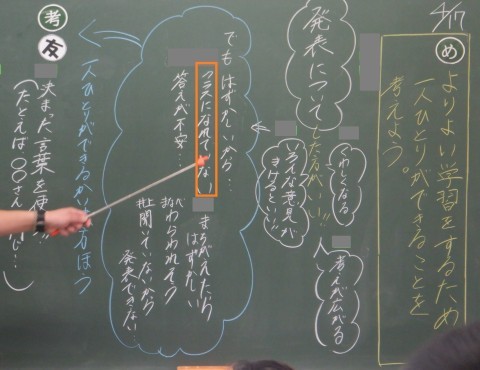 4/17
め
よりよい学習をするため
一人ひとりができることを
考えよう。
発表について
した方がいい!!
くわしくなる
考えが広がる
いろんな意見が
きけるといい!!
でもはずかしいから…
クラスになれてない
答えが不安…
まちがえたら
はずかしい
わらわれそう
聞いていないから
発表できない…
一人ひとりができるかいけつほうほう
考
友
決まった言葉を使う!!
(たとえば〇〇さん